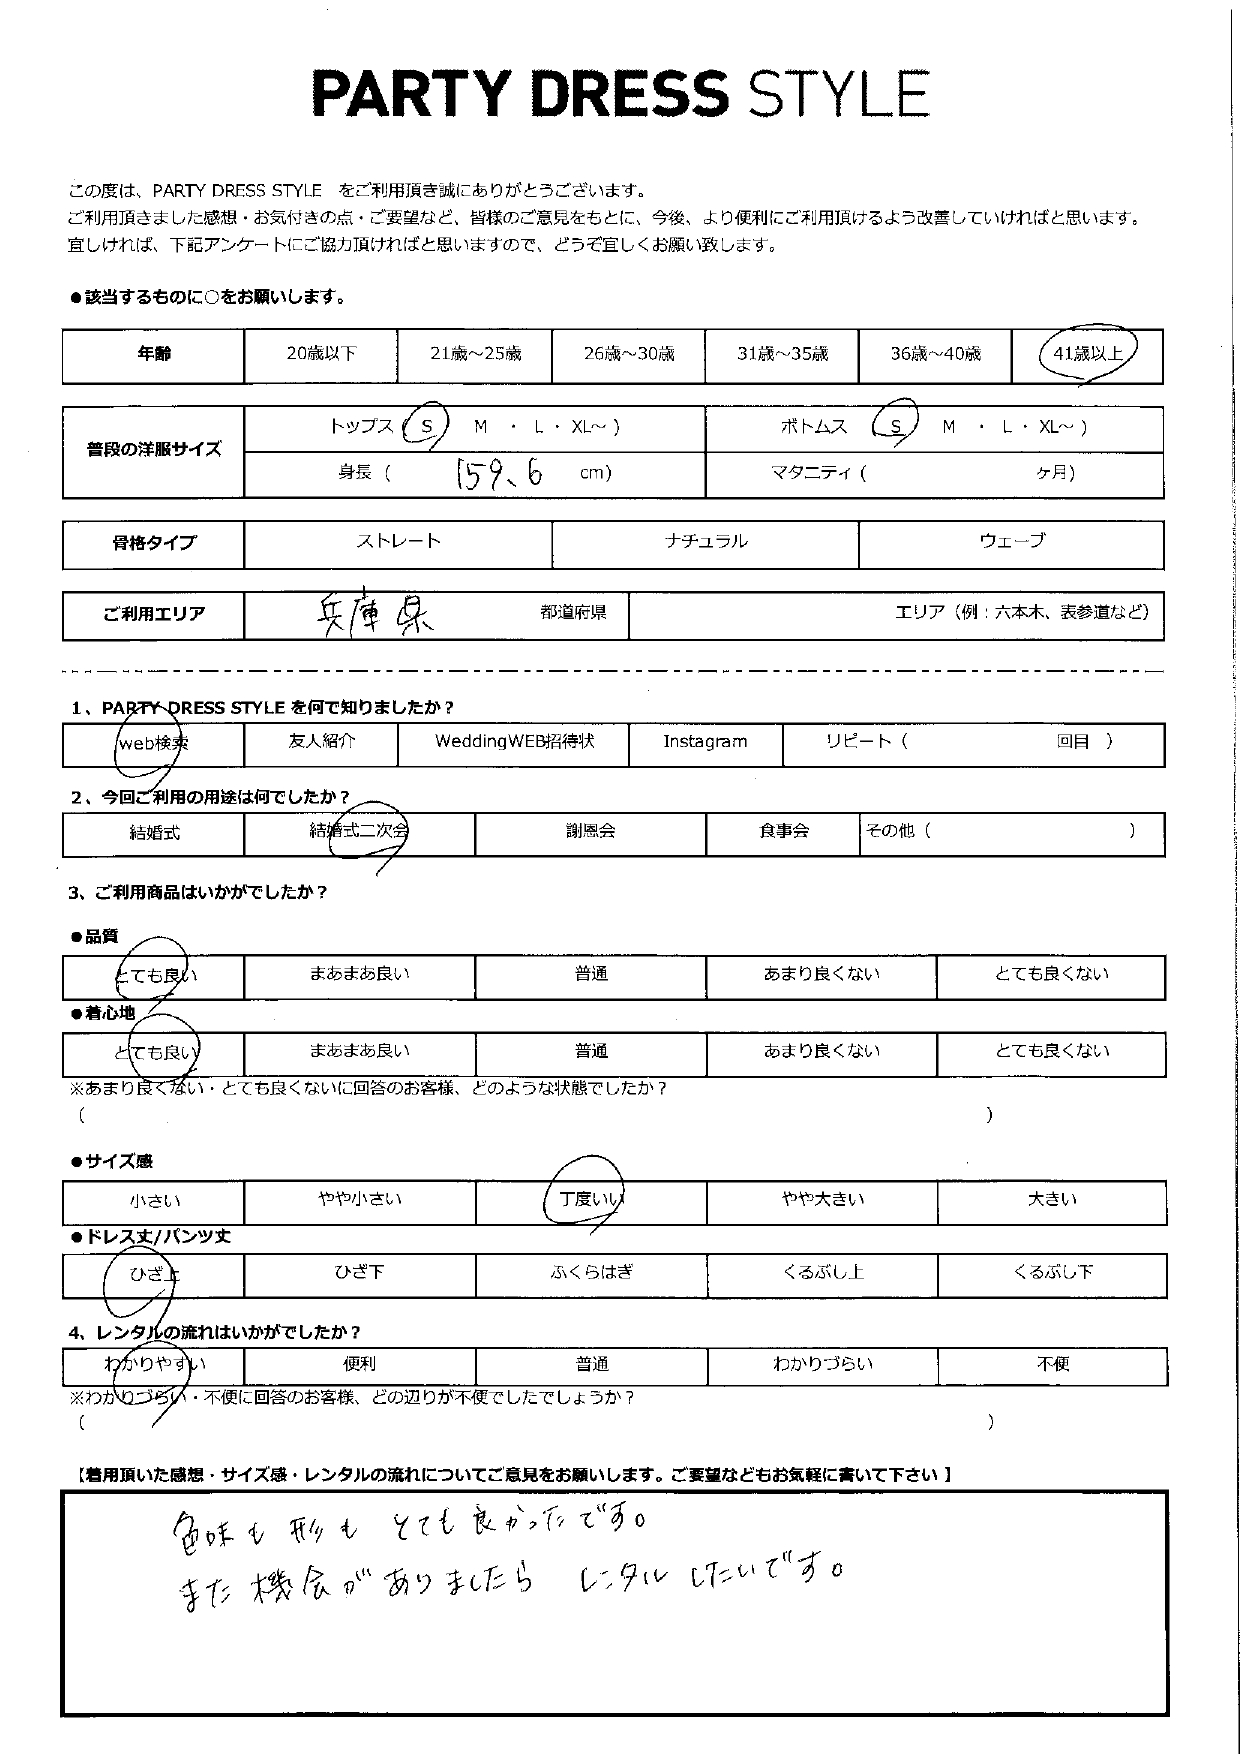 PARTY DRESS STYLE
この度は、PARTY DRESS STYLE をご利用頂き誠にありがとうございます。
ご利用頂きました感想・お気付きの点・ご要望など、皆様のご意見をもとに、今後、より便利にご利用頂けるよう改善していければと思います。
宜しければ、下記アンケートにご協力頂ければと思いますので、どうぞ宜しくお願い致します。
●該当するものに○をお願いします。
年齢 20歳以下 21歳～25歳 26歳～30歳 31歳～35歳 36歳～40歳 41歳以上
普段の洋服サイズ トップス ( S M ・ L ・ XL～ ) ボトムス ( S M ・ L ・ XL～ )
身長 ( 159、6 cm) マタニティ ( ヶ月)
骨格タイプ ストレート ナチュラル ウェーブ
ご利用エリア 兵庫県 都道府県 エリア（例：六本木、表参道など）
1、PARTY DRESS STYLE を何で知りましたか？
web検索 友人紹介 WeddingWEB招待状 Instagram リピート ( 回目 )
2、今回ご利用の用途は何でしたか？
結婚式 結婚式二次会 謝恩会 食事会 その他 ( )
3、ご利用商品はいかがでしたか？
●品質
とても良い まあまあ良い 普通 あまり良くない とても良くない
●着心地
とても良い まあまあ良い 普通 あまり良くない とても良くない
※あまり良くない・とても良くないに回答のお客様、どのような状態でしたか？
( )
●サイズ感
小さい やや小さい 丁度いい やや大きい 大きい
●ドレス丈/パンツ丈
ひざ上 ひざ下 ふくらはぎ くるぶし上 くるぶし下
4、レンタルの流れはいかがでしたか？
わかりやすい 便利 普通 わかりづらい 不便
※わかりづらい・不便に回答のお客様、どの辺りが不便でしたでしょうか？
( )
【着用頂いた感想・サイズ感・レンタルの流れについてご意見をお願いします。ご要望などもお気軽に書いて下さい 】
色味も形もとても良かったです。
また機会がありましたら レンタルしたいです。